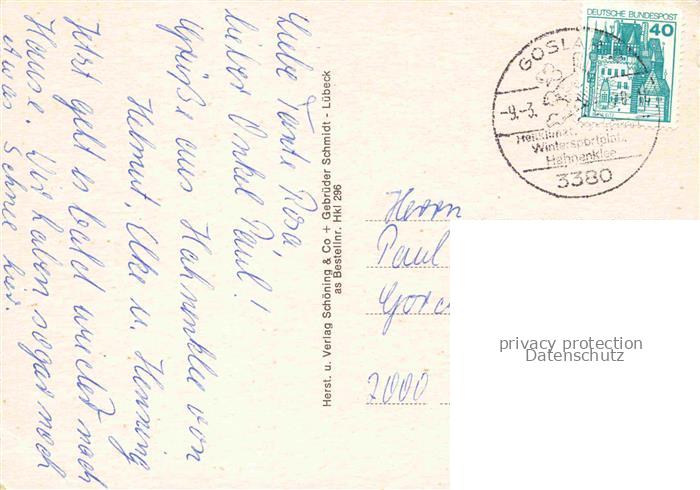 Liebe Tante Rosa,
lieber Onkel Paul!
Grüße aus Hahnenklee von
Helmut, Elke u. Henning
Jetzt geht es bald wieder nach
Hause. Wir haben sogar noch
etwas Schnee hier.
Herst. u. Verlag Schöning & Co + Gebrüder Schmidt - Lübeck
as Bestellnr. HKl 296
DEUTSCHE BUNDESPOST
40
GOSLA
-9.-3.
Wintersportplatz
Hahnenklee
3380
Herrn
Paul
Gorc
2000
privacy protection
Datenschutz